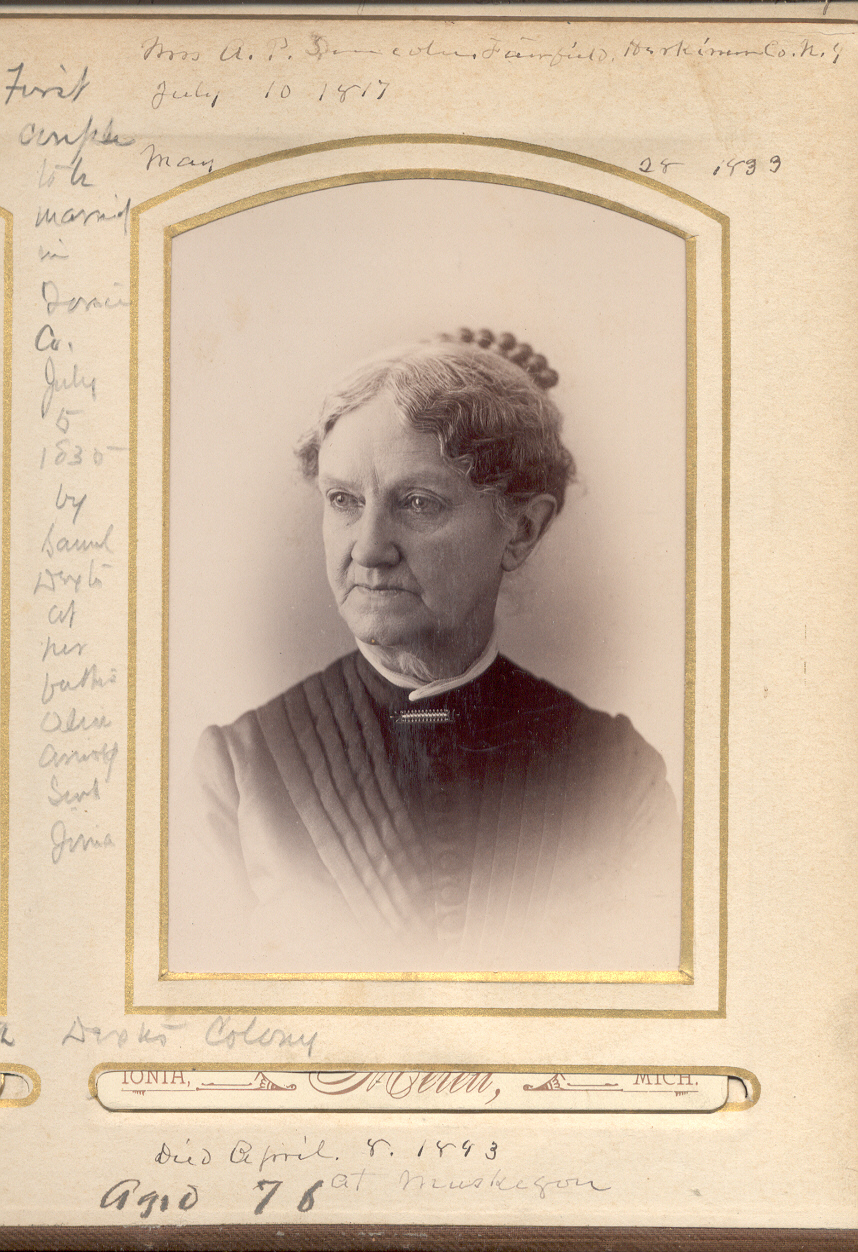 Mrs A. P. Fairfield, Herkimer Co. N. Y
July 10 1817
May 28 1833
First
couple
to be
married
in
Ionia
Co.
July
5
1835
by
Samuel
Dexter
at
her
father
Arnold
Dexter Colony
IONIA, MICH.
Died April. 8. 1893
at Muskegon
Aged 76